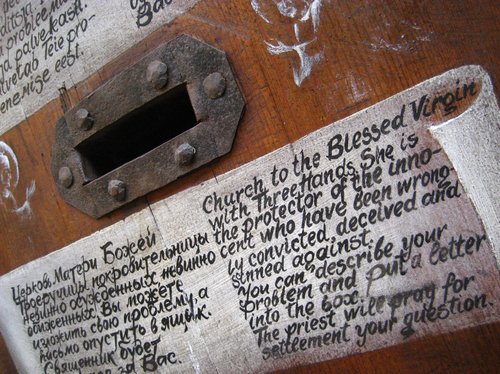 Вас.
Teie pro-
eest.
Церковь Матери Божей
Троеручицы покровительницы
невинно осужденных невинно
обиженных. Вы можете
изложить свою проблему, а
письмо опустить в ящик.
Священник будет
за Вас.
Church to the Blessed Virgin
with Three Hands. She is
the protector of the inno-
cent who have been wrong-
ly convicted, deceived and
sinned against.
You can describe your
problem and put a letter
into the box.
The priest will pray for
settlement your question.